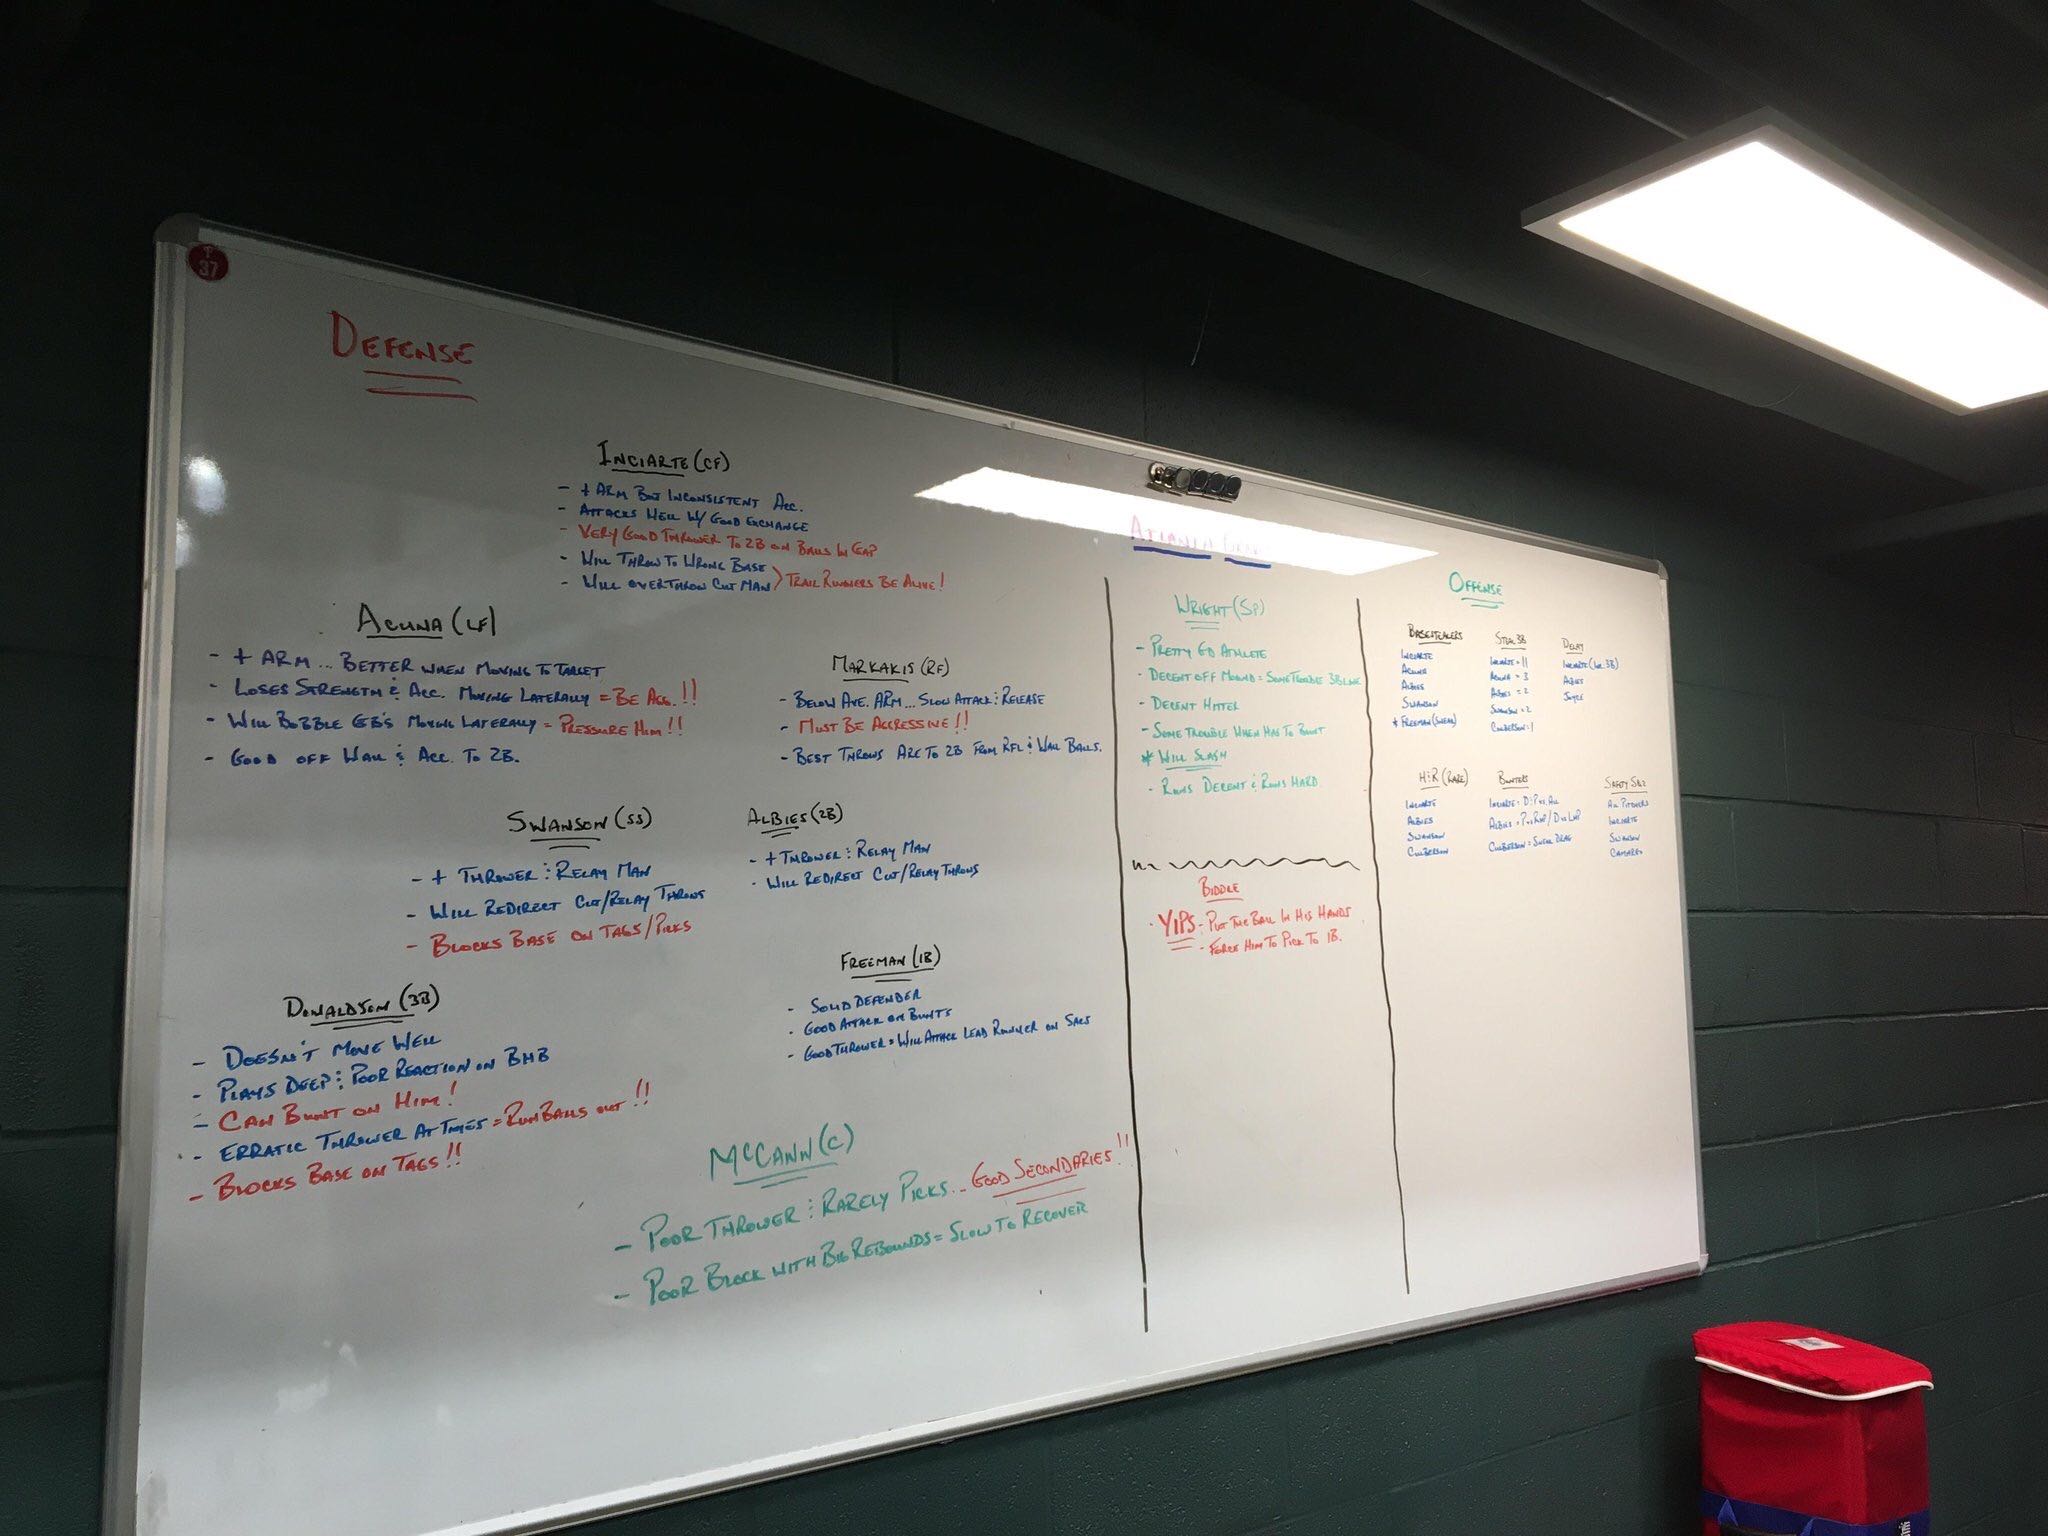 T
37
DEFENSE
INCIARTE (CF)
- + ARM BUT INCONSISTENT ACC.
- ATTACKS WELL W/ GOOD EXCHANGE
- VERY GOOD THROWER TO 2B ON BALLS IN GAP
- WILL THROW TO WRONG BASE
- WILL OVERTHROW CUT MAN > TRAIL RUNNERS BE ALIVE!
ACUNA (LF)
- + ARM... BETTER WHEN MOVING TO TARGET
- LOSES STRENGTH & ACC. MOVING LATERALLY = BE AGG.!!
- WILL BOBBLE GB'S MOVING LATERALLY = PRESSURE HIM!!
- GOOD OFF WALL & ACC. TO 2B.
MARKAKIS (RF)
- BELOW AVE. ARM... SLOW ATTACK & RELEASE
- MUST BE AGGRESSIVE!!
- BEST THROWS ARE TO 2B FROM RFL & WALL BALLS.
SWANSON (SS)
- + THROWER & RELAY MAN
- WILL REDIRECT CUT/RELAY THROWS
- BLOCKS BASE ON TAGS/PICKS
ALBIES (2B)
- + THROWER & RELAY MAN
- WILL REDIRECT CUT/RELAY THROWS
FREEMAN (1B)
- SOLID DEFENDER
- GOOD ATTACK ON BUNTS
- GOOD THROWER = WILL ATTACK LEAD RUNNER ON SACS
DONALDSON (3B)
- DOESN'T MOVE WELL
- PLAYS DEEP & POOR REACTION ON BHB
- CAN BUNT ON HIM!
- ERRATIC THROWER AT TIMES = RUN BALLS OUT!!
- BLOCKS BASE ON TAGS!!
McCANN (C)
- POOR THROWER & RARELY PICKS... GOOD SECONDARIES!!
- POOR BLOCK WITH BIG REBOUNDS = SLOW TO RECOVER
ATLANTA
WRIGHT (SP)
- PRETTY GD ATHLETE
- DECENT OFF MOUND = SOME TROUBLE 3B LINE
- DECENT HITTER
- SOME TROUBLE WHEN HAS TO BUNT
* WILL SLASH
- RUNS DECENT & RUNS HARD
BIDDLE
- YIPS - PUT THE BALL IN HIS HANDS
- FORCE HIM TO PICK TO 1B.
OFFENSE
BASESTEALERS
INCIARTE
ACUNA
ALBIES
SWANSON
* FREEMAN (SNEAK)
STEAL 3B
INCIARTE = 11
ACUNA = 3
ALBIES = 2
SWANSON = 2
CULBERSON = 1
DELAY
INCIARTE (INC. 3B)
ALBIES
JOYCE
H & R (RARE)
INCIARTE
ALBIES
SWANSON
CULBERSON
BUNTERS
INCIARTE = D & P VS. ALL
ALBIES = P VS RHP / D VS LHP
CULBERSON = SNEAK DRAG
SAFETY SQZ
ALL PITCHERS
INCIARTE
SWANSON
CAMARGO